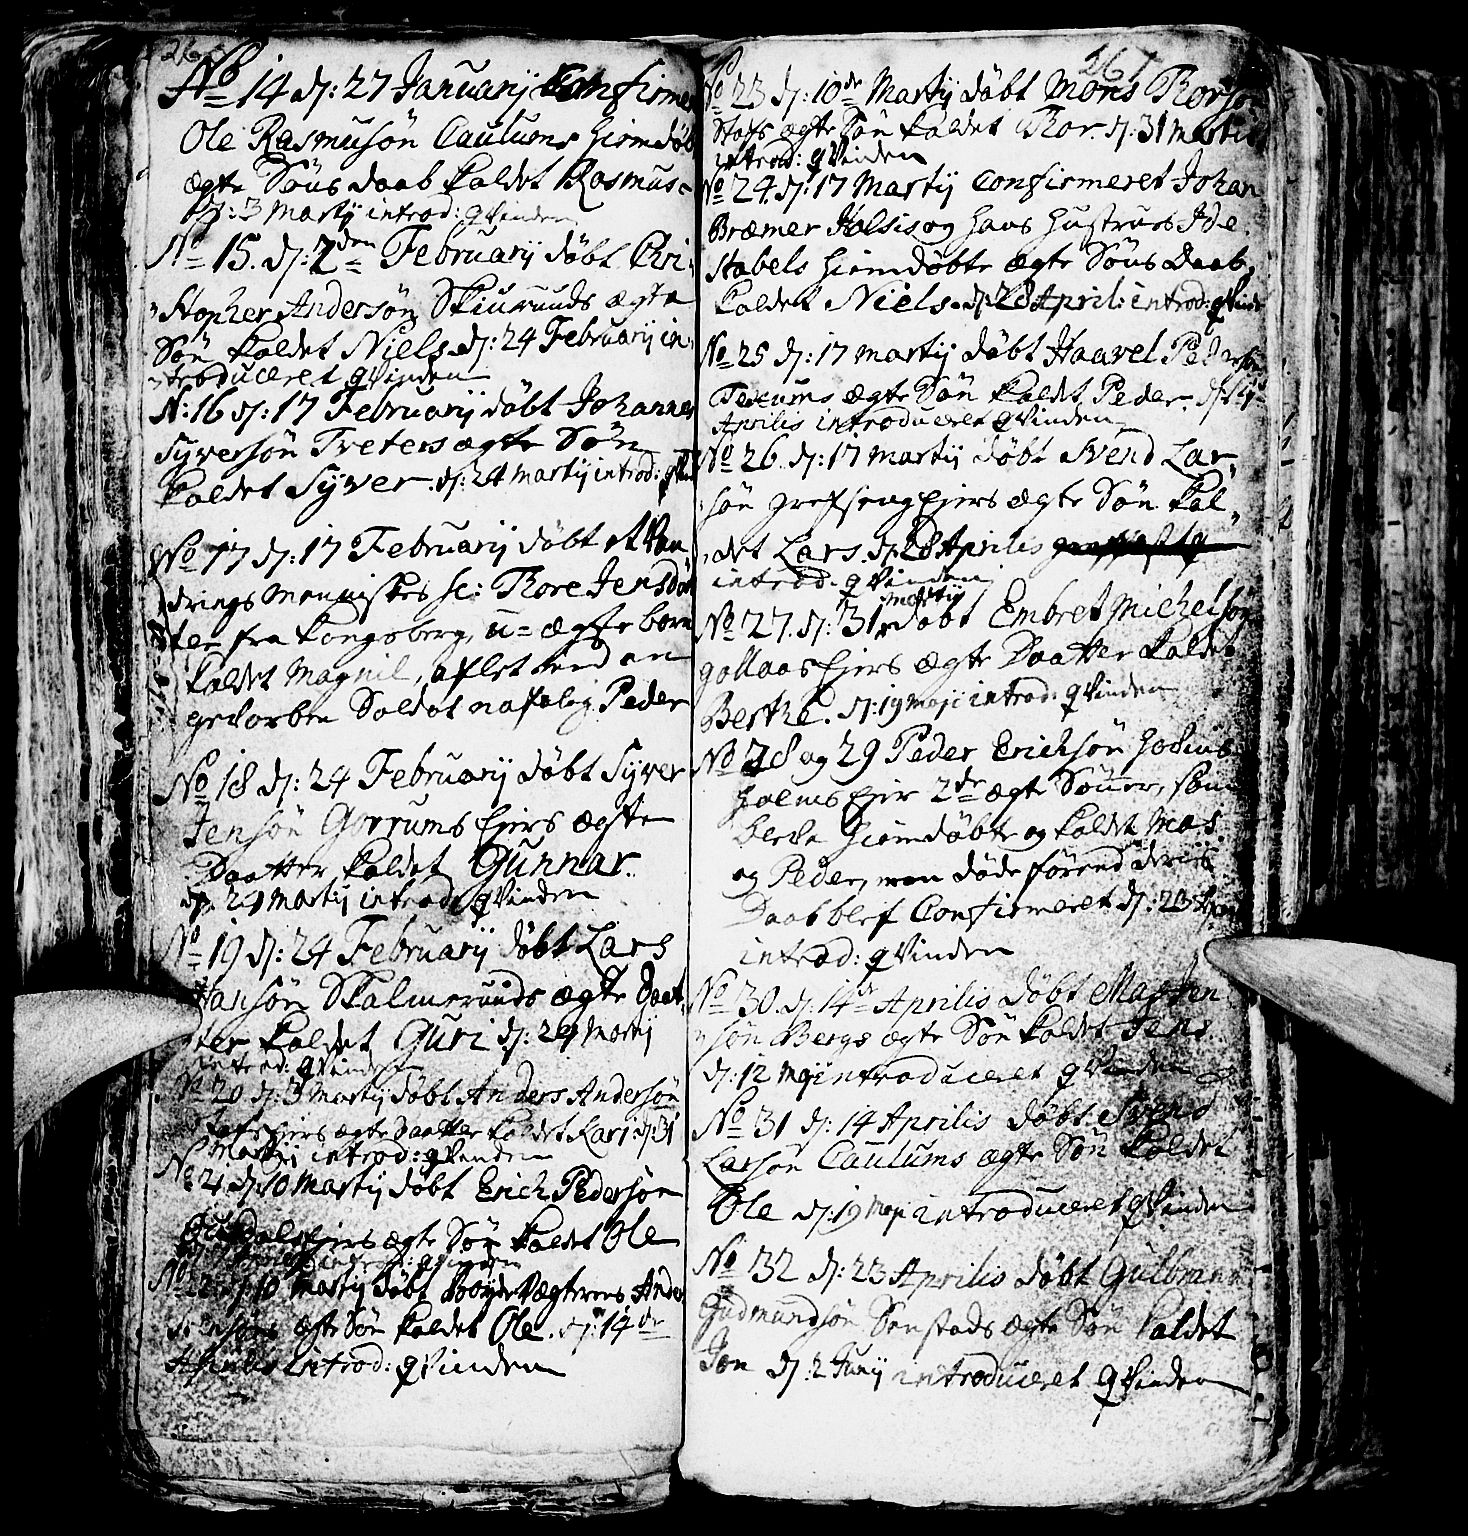 No 14 d: 27 Januarij Confirmer
Ole Rasmusön Caulums hiemdøbt
ægte Søns daab kaldet Rasmus
d: 3 Martij introd: qvinden
No 15. d: 2den Februarij døbt Chri-
stopher Andersön Skiuruuds ægte
Søn kaldet Niels. d: 24 Februarij in-
troduceret qvinden
N: 16 d: 17 Februarij døbt Johannes
Syversön Treters ægte Søn
kaldet Syver. d: 24 Martij introd:
No 17 d: 17 Februarij døbt et Van-
drings Menniskes sc: Thore Jensdat-
ter fra Kongsberg, u-ægte barn
kaldet Magnil, aflet med en
Soldat Peder
No 18 d: 24 Februarij døbt Syver
Jensön Gorrums Ejers ægte
Daatter kaldet Gunnar
d: 24 Martij introd: qvinden
No 19 d: 24 Februarij døbt Lars
Hansön Skalmeruuds ægte Daat-
ter kaldet Guri d: 24 Martij
introd: qvinden
No 20 d: 3 Martij døbt Anders Andersön
Ejers ægte Daatter kaldet Kari d: 31
Martij introd: qvinden
No 21 d: 10 Martij døbt Erich Pedersön
Ejers ægte Søn kaldet Ole
qvinden
No 22 d: 10 Martij døbt Vægterens Anders
ægte Søn kaldet Ole. d: 14de
Aprilis introd: qvinden
267
No 23 d: 10de Martij døbt Mons Thorsön
Stafs ægte Søn kaldet Thor. d: 31 Martij
introd: qvinden
No 24. d: 17 Martij Confirmeret Johan
Bræmer Holsis og hans Hustrues Ide
Stabels hiemdøbte ægte Søns Daab,
kaldet Niels. d: 28 April: introd: qvinden
No 25 d: 17 Martij døbt Haavel Pedersön
ægte Søn kaldet Peder.
Aprilis introduceret qvinden
No 26. d: 17 Martij døbt Svend Lar-
sön Grefsengs Ejers ægte Søn kal-
det Lars. d: 28 Aprilis
introd: qvinden
No 27. d: 31 Martij døbt Embret Michelsön
Gollaas Ejers ægte Daatter kaldet
Berthe. d: 19 Maji introd: qvinden
No 28 og 29 Peder Erichsön
holms Ejer 2de ægte Sønner, som
bleve hiemdøbte og kaldet Mas
og Peder, men døde førend deris
Daab blef Confirmeret d: 23 Apr
introd: qvinden
No 30. d: 14de Aprilis døbt Mas Jen-
sön Bergs ægte Søn kaldet Jens
d: 12 Maji introduceret qvinden
No 31 d: 14 Aprilis døbt Svend
Larsön Caulums ægte Søn kaldet
Ole d: 19 Maji introduceret qvinden
No 32 d: 23 Aprilis døbt Gulbrand
Gudmundsön Sonstads ægte Søn kaldet
Jon d: 2 Junij introduceret qvinden